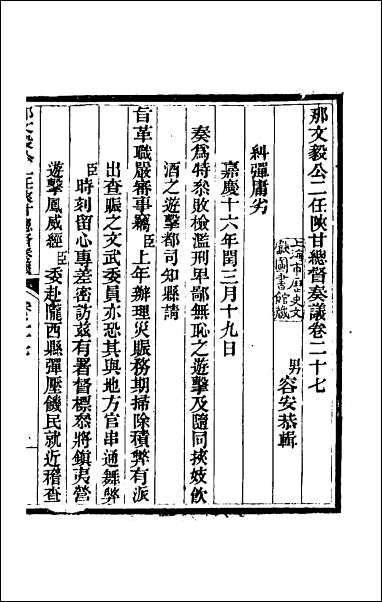 那文毅公二任陝甘總督奏議卷二十七
上海市歷史文
獻圖書館藏
男容安恭輯
糾彈庸劣
嘉慶十六年閏三月十九日
奏爲特叅敗檢濫刑卑鄙無恥之遊擊及隨同挾妓飲
酒之遊擊都司知縣請
旨革職嚴審事竊臣上年辦理災賑務期掃除積弊有派
出查賑之文武委員亦恐其與地方官串通舞弊
臣時刻留心專差密訪茲有署督標叅將鎮夷營
遊擊鳳威經臣委赴隴西縣彈壓饑民就近稽查